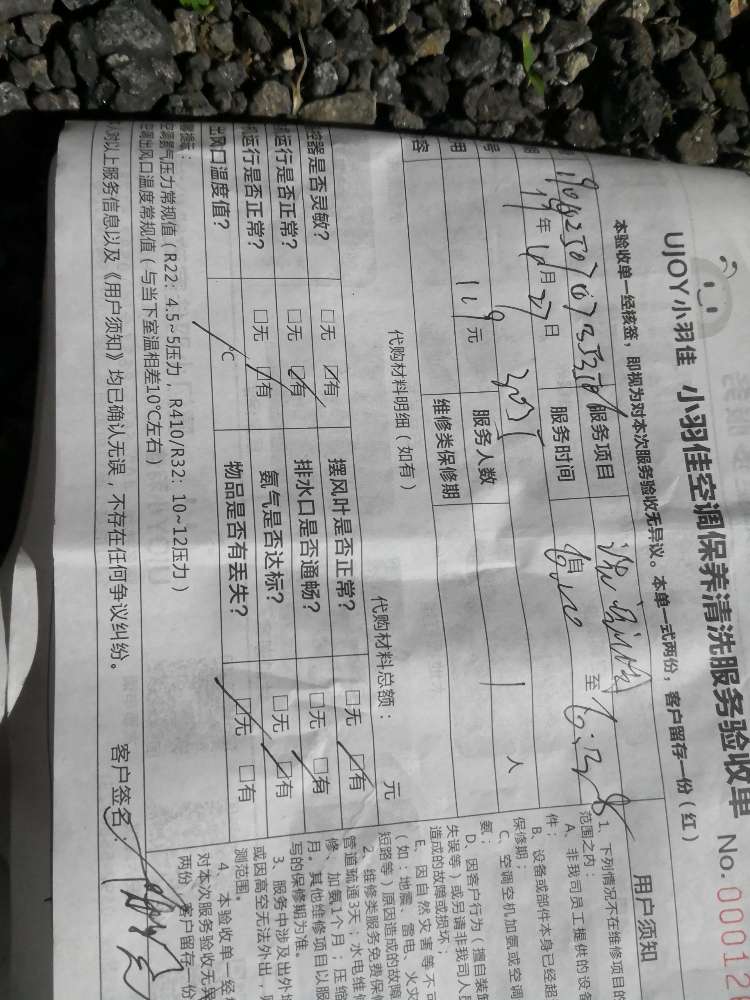 UJOY小羽佳 小羽佳空调保养清洗服务验收单 No. 000012
本验收单一经核签，即视为对本次服务验收无异议。本单一式两份，客户留存一份（红）
服务项目
年 月 27 日 服务时间 自 至
119 元 服务人数 1 人
用 维修类保修期
容
代购材料明细（如有） 代购材料总额： 元
控器是否灵敏？ □无 □有 摆风叶是否正常？ □无 □有
运行是否正常？ □无 □有 排水口是否通畅？ □无 □有
运行是否正常？ □无 □有 氨气是否达标？ □无 □有
出风口温度值？ ℃ 物品是否有丢失？ □无 □有
氨气压力常规值（R22：4.5~5压力，R410/R32：10~12压力）
出风口温度常规值（与当下室温相差10℃左右）
对以上服务信息以及《用户须知》均已确认无误，不存在任何争议纠纷。 客户签名：
用户须知
1、下列情况不在维修项目的
范围之内：
A、非我司员工提供的设备
件；
B、设备或部件本身已经超
保修期；
C、空调空机加氨或空调
氨；
D、因客户行为（擅自装
失误等）或另请非我司人员
造成的故障或损坏；
E、因自然灾害等不可
（如：地震、雷电、火灾
短路等）原因造成的故障
2、维修类服务免费保
管道疏通3天；水电维修
修、加氨1个月；压缩
月。其他维修项目以服
写的保修期为准。
3、服务中涉及出外
或因高空无法外出，
测范围。
4、本验收单一经
对本次服务验收无异
两份，客户留存一份